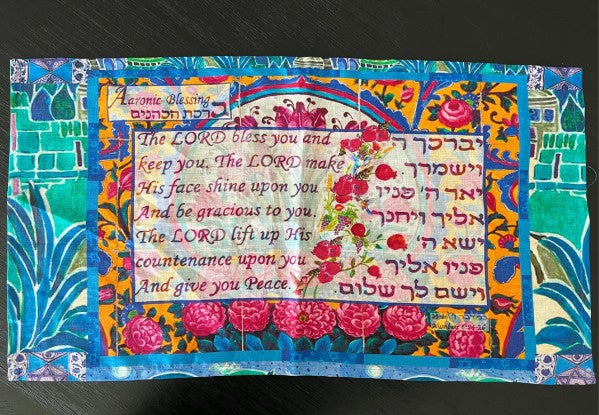 Aaronic Blessing
ברכת הכהנים
The LORD bless you and
keep you. The LORD make
His face shine upon you
And be gracious to you.
The LORD lift up His
countenance upon you
And give you Peace.
יברכך ה'
וישמרך
יאר ה' פניו
אליך ויחנך
ישא ה'
פניו אליך
וישם לך שלום
Numbers 6:24-26